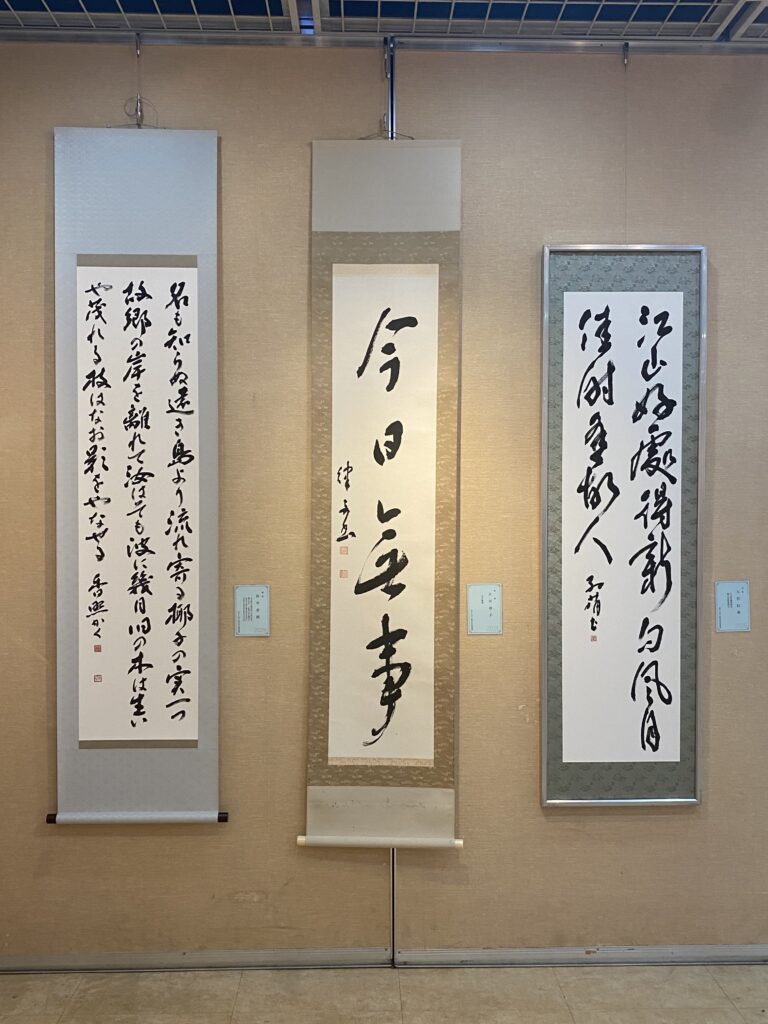 江山好處得新句風月
佳時逢故人
今日無事
名も知らぬ遠き島より流れ寄る椰子の実一つ
故郷の岸を離れて汝はそも波に幾月旧の木は生い
や茂れる枝はなお影をやなせる 香煕かく